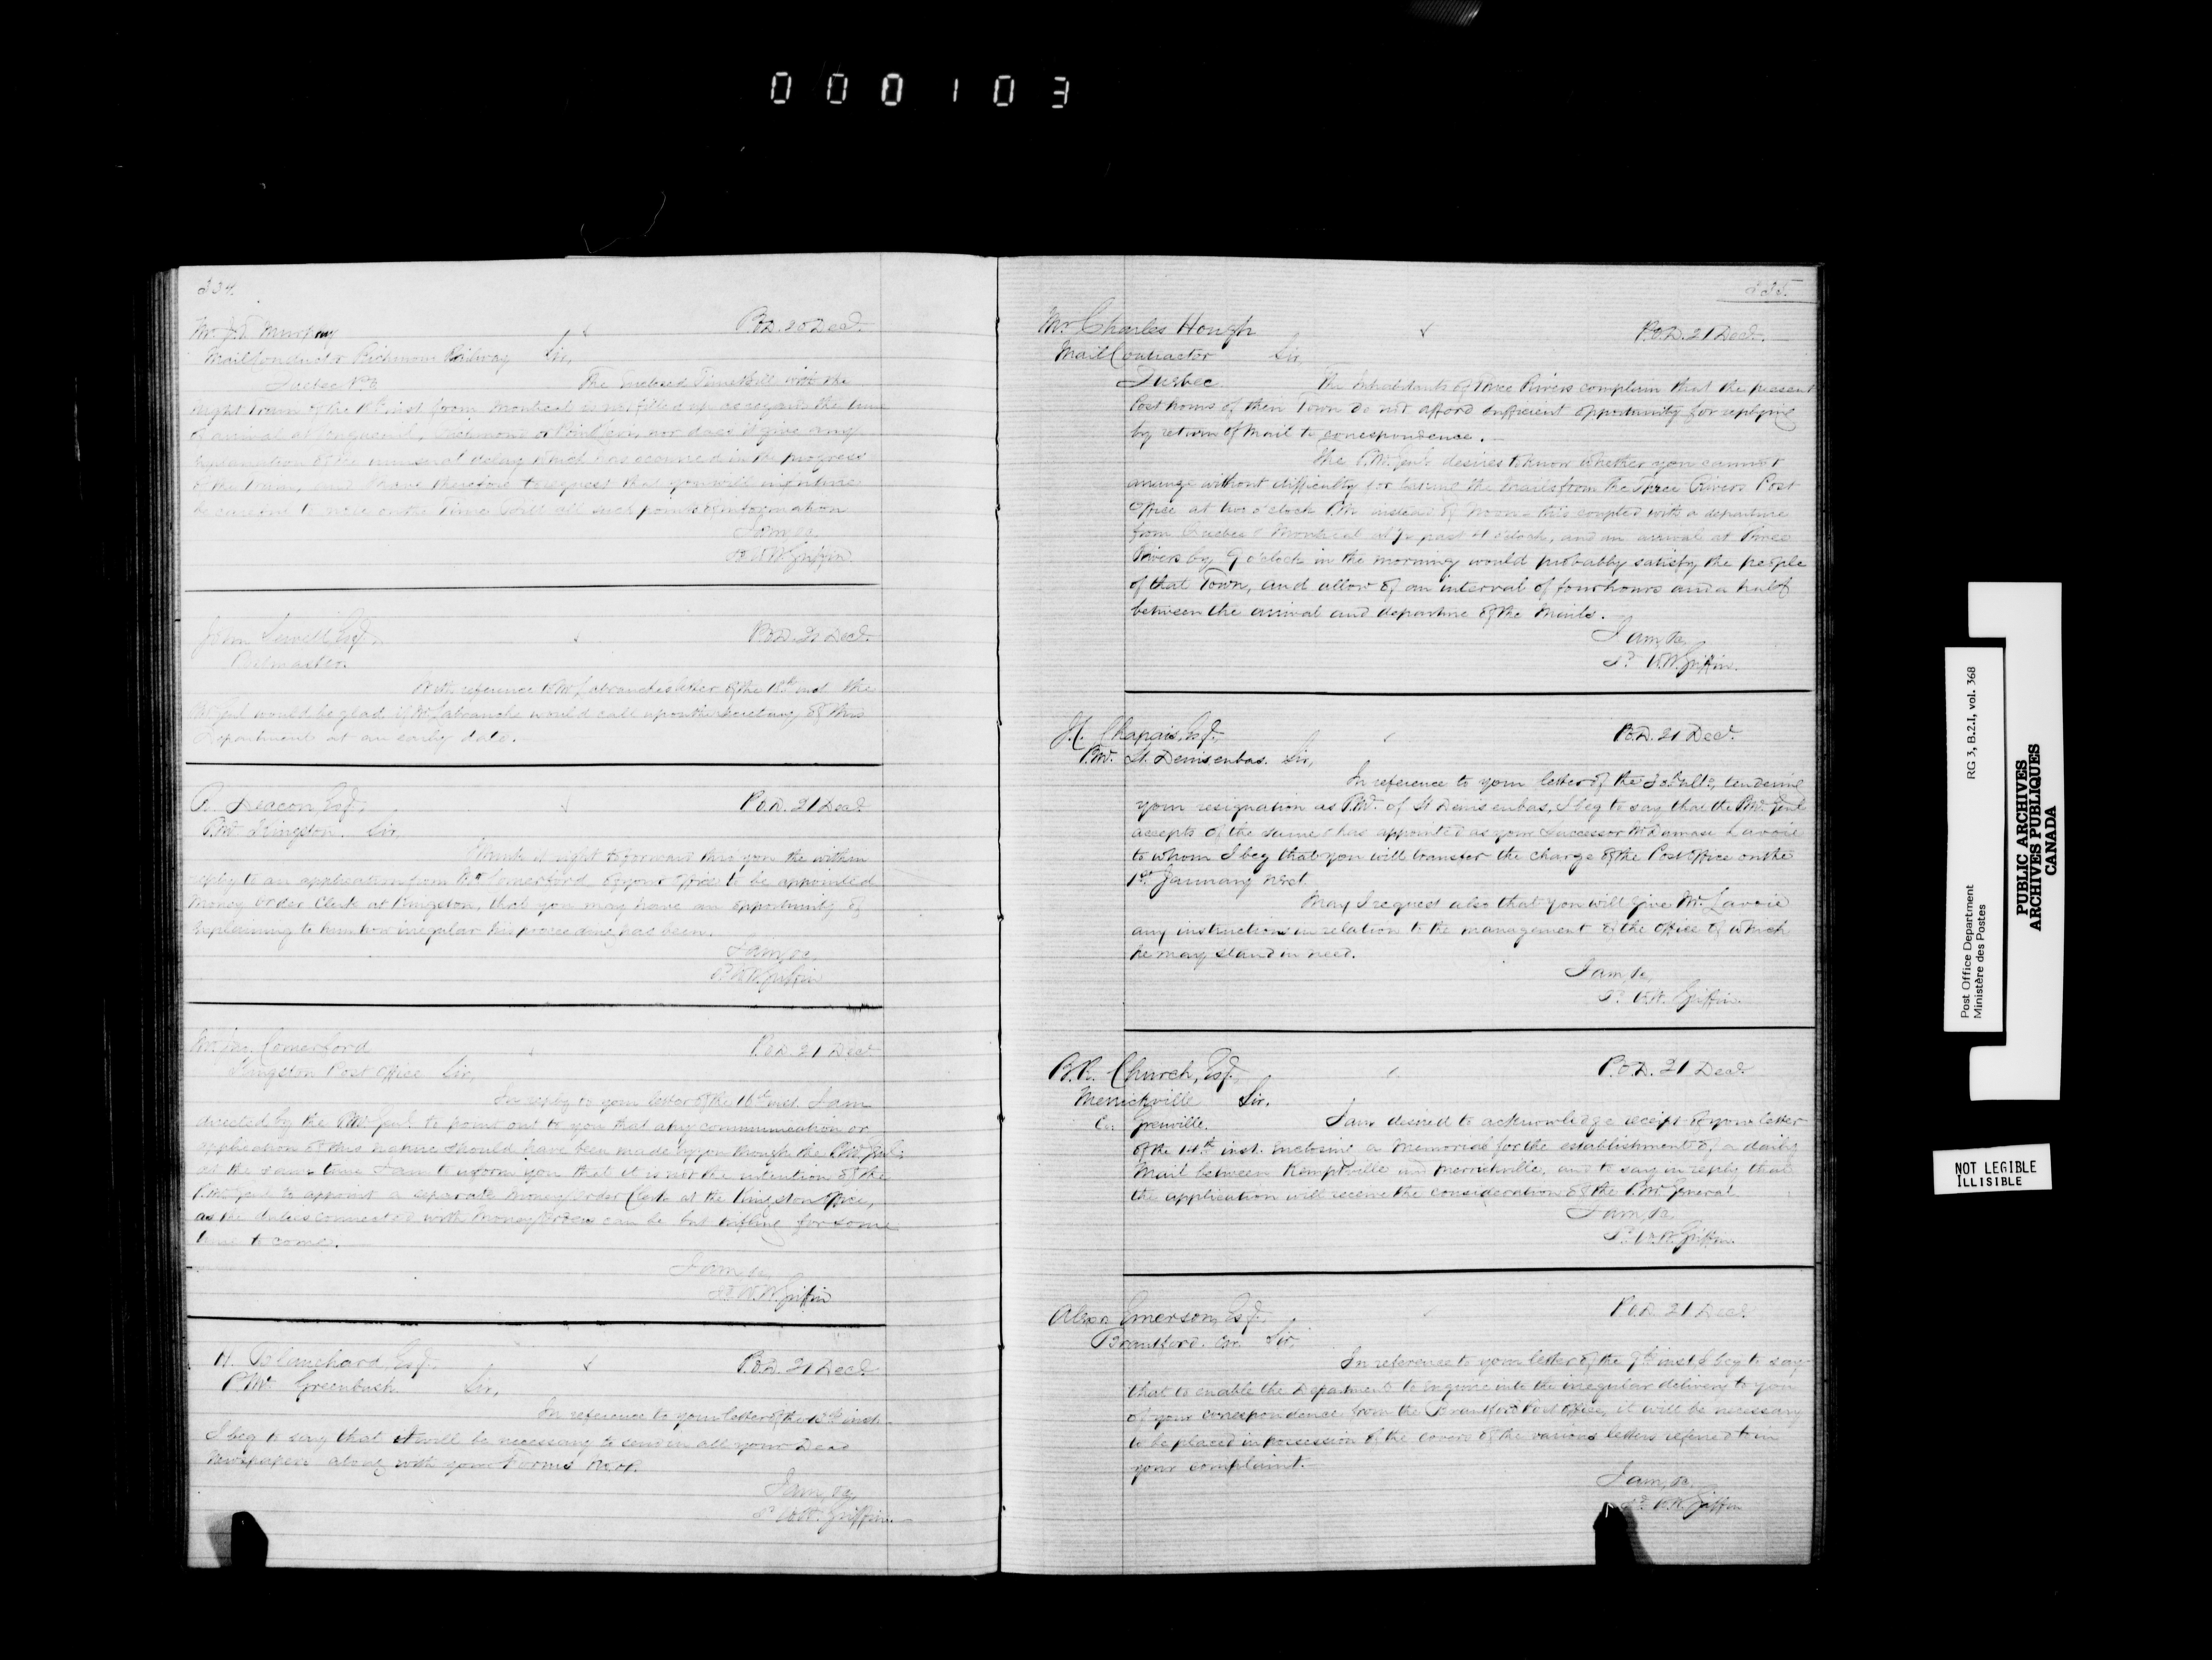 000103
Mr. J. Murray
P.O.D. 20 Decr.
Mail Conductor Richmond Railway Sir,
Quebec
The Enclosed Time Bill with the
night Train of the inst from Montreal is not filled up as regards the time
of arrival at Longueuil, Richmond or Point Levi, nor does it give any
explanation of the unusual delay which has occurred in the progress
of the Train, and I have therefore to request that you will in future
be careful to note on the Time Bill all such points of information
I am &c.
Sd. W.H. Griffin
John Sewell Esq.
P.O.D. 21 Decr.
Postmaster
With reference to Mr. Labranche's letter of the 18th inst the
P.M. Genl would be glad if Mr. Labranche would call upon the Secretary of this
Department at an early date.
R. Deacon Esq.
P.O.D. 21 Decr.
P.M. Kingston. Sir,
I think it right to forward thro you the within
reply to an application from Mr. Comerford of your Office to be appointed
Money Order Clerk at Kingston, that you may have an opportunity of
explaining to him how irregular his proceeding has been.
I am &c.
Sd. W.H. Griffin
Mr. Comerford
P.O.D. 21 Decr.
Kingston Post Office Sir,
In reply to your letter of the 16th inst. I am
directed by the P.M. Genl. to point out to you that any communication or
application of this nature should have been made by you through the P.M.
at the same time I am to inform you that it is not the intention of the
P.M. Genl to appoint a separate Money Order Clerk at the Kingston Office,
as the duties connected with Money Orders can be but trifling for some
time to come.
I am &c.
Sd. W.H. Griffin
H. Blanchard, Esq.
P.O.D. 21 Decr.
P.M. Greenbush Sir,
In reference to your letter of the inst.
I beg to say that it will be necessary to send in all your Dead
Newspapers along with your Forms
I am, &c.
Sd. W.H. Griffin
225.
Mr. Charles Hough
P.O.D. 21 Decr.
Mail Contractor Sir,
Quebec
The Inhabitants of Three Rivers complain that the present
Post hours of their Town do not afford sufficient opportunity for replying
by return of Mail to correspondence.
The P.M. Genl. desires to know whether you cannot
arrange without difficulty for taking the Mails from the Three Rivers Post
Office at two o'clock P.M. instead of Noon - this coupled with a departure
from Quebec & Montreal at ½ past 4 o'clock, and an arrival at Three
Rivers by 9 o'clock in the morning would probably satisfy the people
of that Town, and allow of an interval of four hours and a half
between the arrival and departure of the Mails.
I am &c.
Sd. W.H. Griffin.
Chapais, Esq.
P.O.D. 21 Decr.
P.M. St. Denis en bas. Sir,
In reference to your letter of the ulto, tendering
your resignation as P.M. of St Denis en bas, I beg to say that the P.M. Genl
accepts of the same & has appointed as your Successor Mr. Damase Lavoie
to whom I beg that you will transfer the charge of the Post Office on the
1st January next.
May I request also that you will give Mr. Lavoie
any instructions in relation to the management of the Office of which
he may stand in need.
I am &c,
Sd. W.H. Griffin
B.R. Church, Esq.
P.O.D. 21 Decr.
Merrickville Sir.
Co. Grenville.
I am desired to acknowledge receipt of your letter
of the 14th inst. enclosing a Memorial for the establishment of a daily
Mail between Kemptville and Merrickville, and to say in reply that
the application will receive the consideration of the P.M. General.
I am, &c.
Sd. W.H. Griffin.
Alexr. Emerson, Esq.
P.O.D. 21 Decr.
Brantford. Sir,
In reference to your letter of the 9th inst, I beg to say
that to enable the Department to enquire into the irregular delivery to you
of your correspondence from the Brantford Post Office, it will be necessary
to be placed in possession of the covers of the various letters referred to in
your complaint.
I am, &c.
Sd. W.H. Griffin
Post Office Department
Ministère des Postes
RG 3, B.2.I, vol. 368
PUBLIC ARCHIVES
ARCHIVES PUBLIQUES
CANADA
NOT LEGIBLE
ILLISIBLE